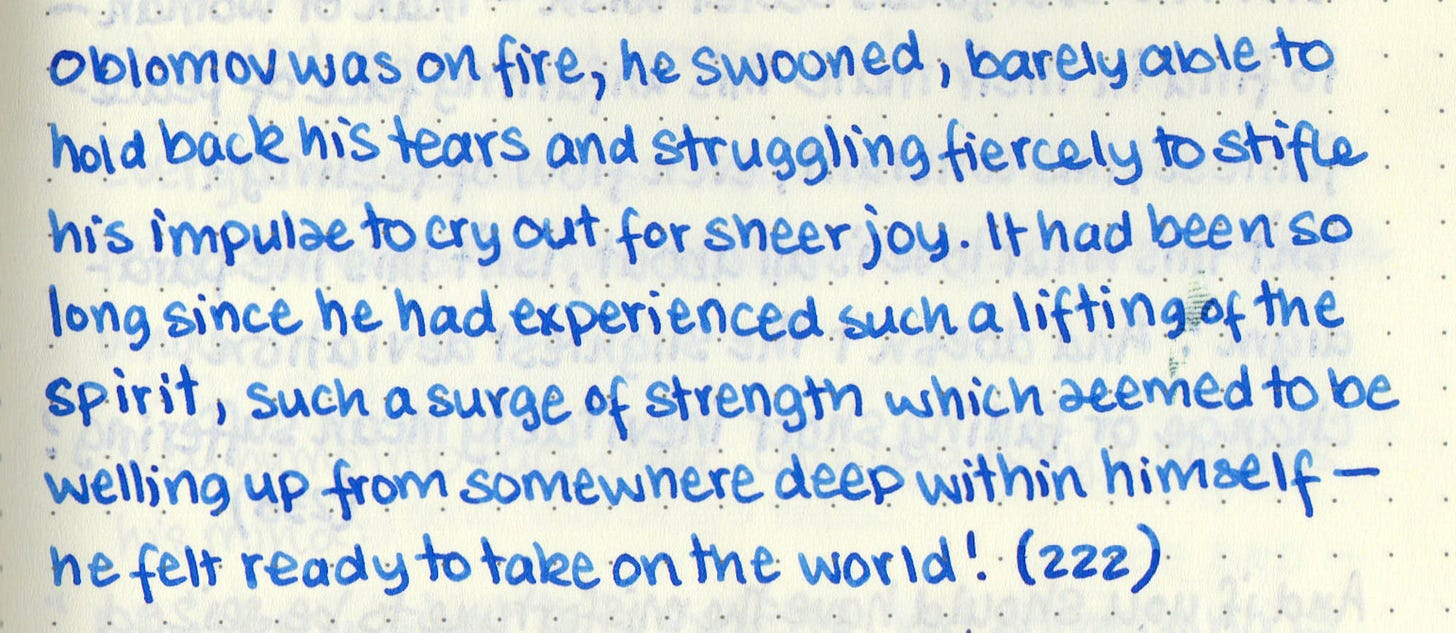 Oblomov was on fire, he swooned, barely able to
hold back his tears and struggling fiercely to stifle
his impulse to cry out for sheer joy. It had been so
long since he had experienced such a lifting of the
spirit, such a surge of strength which seemed to be
welling up from somewhere deep within himself —
he felt ready to take on the world! (222)